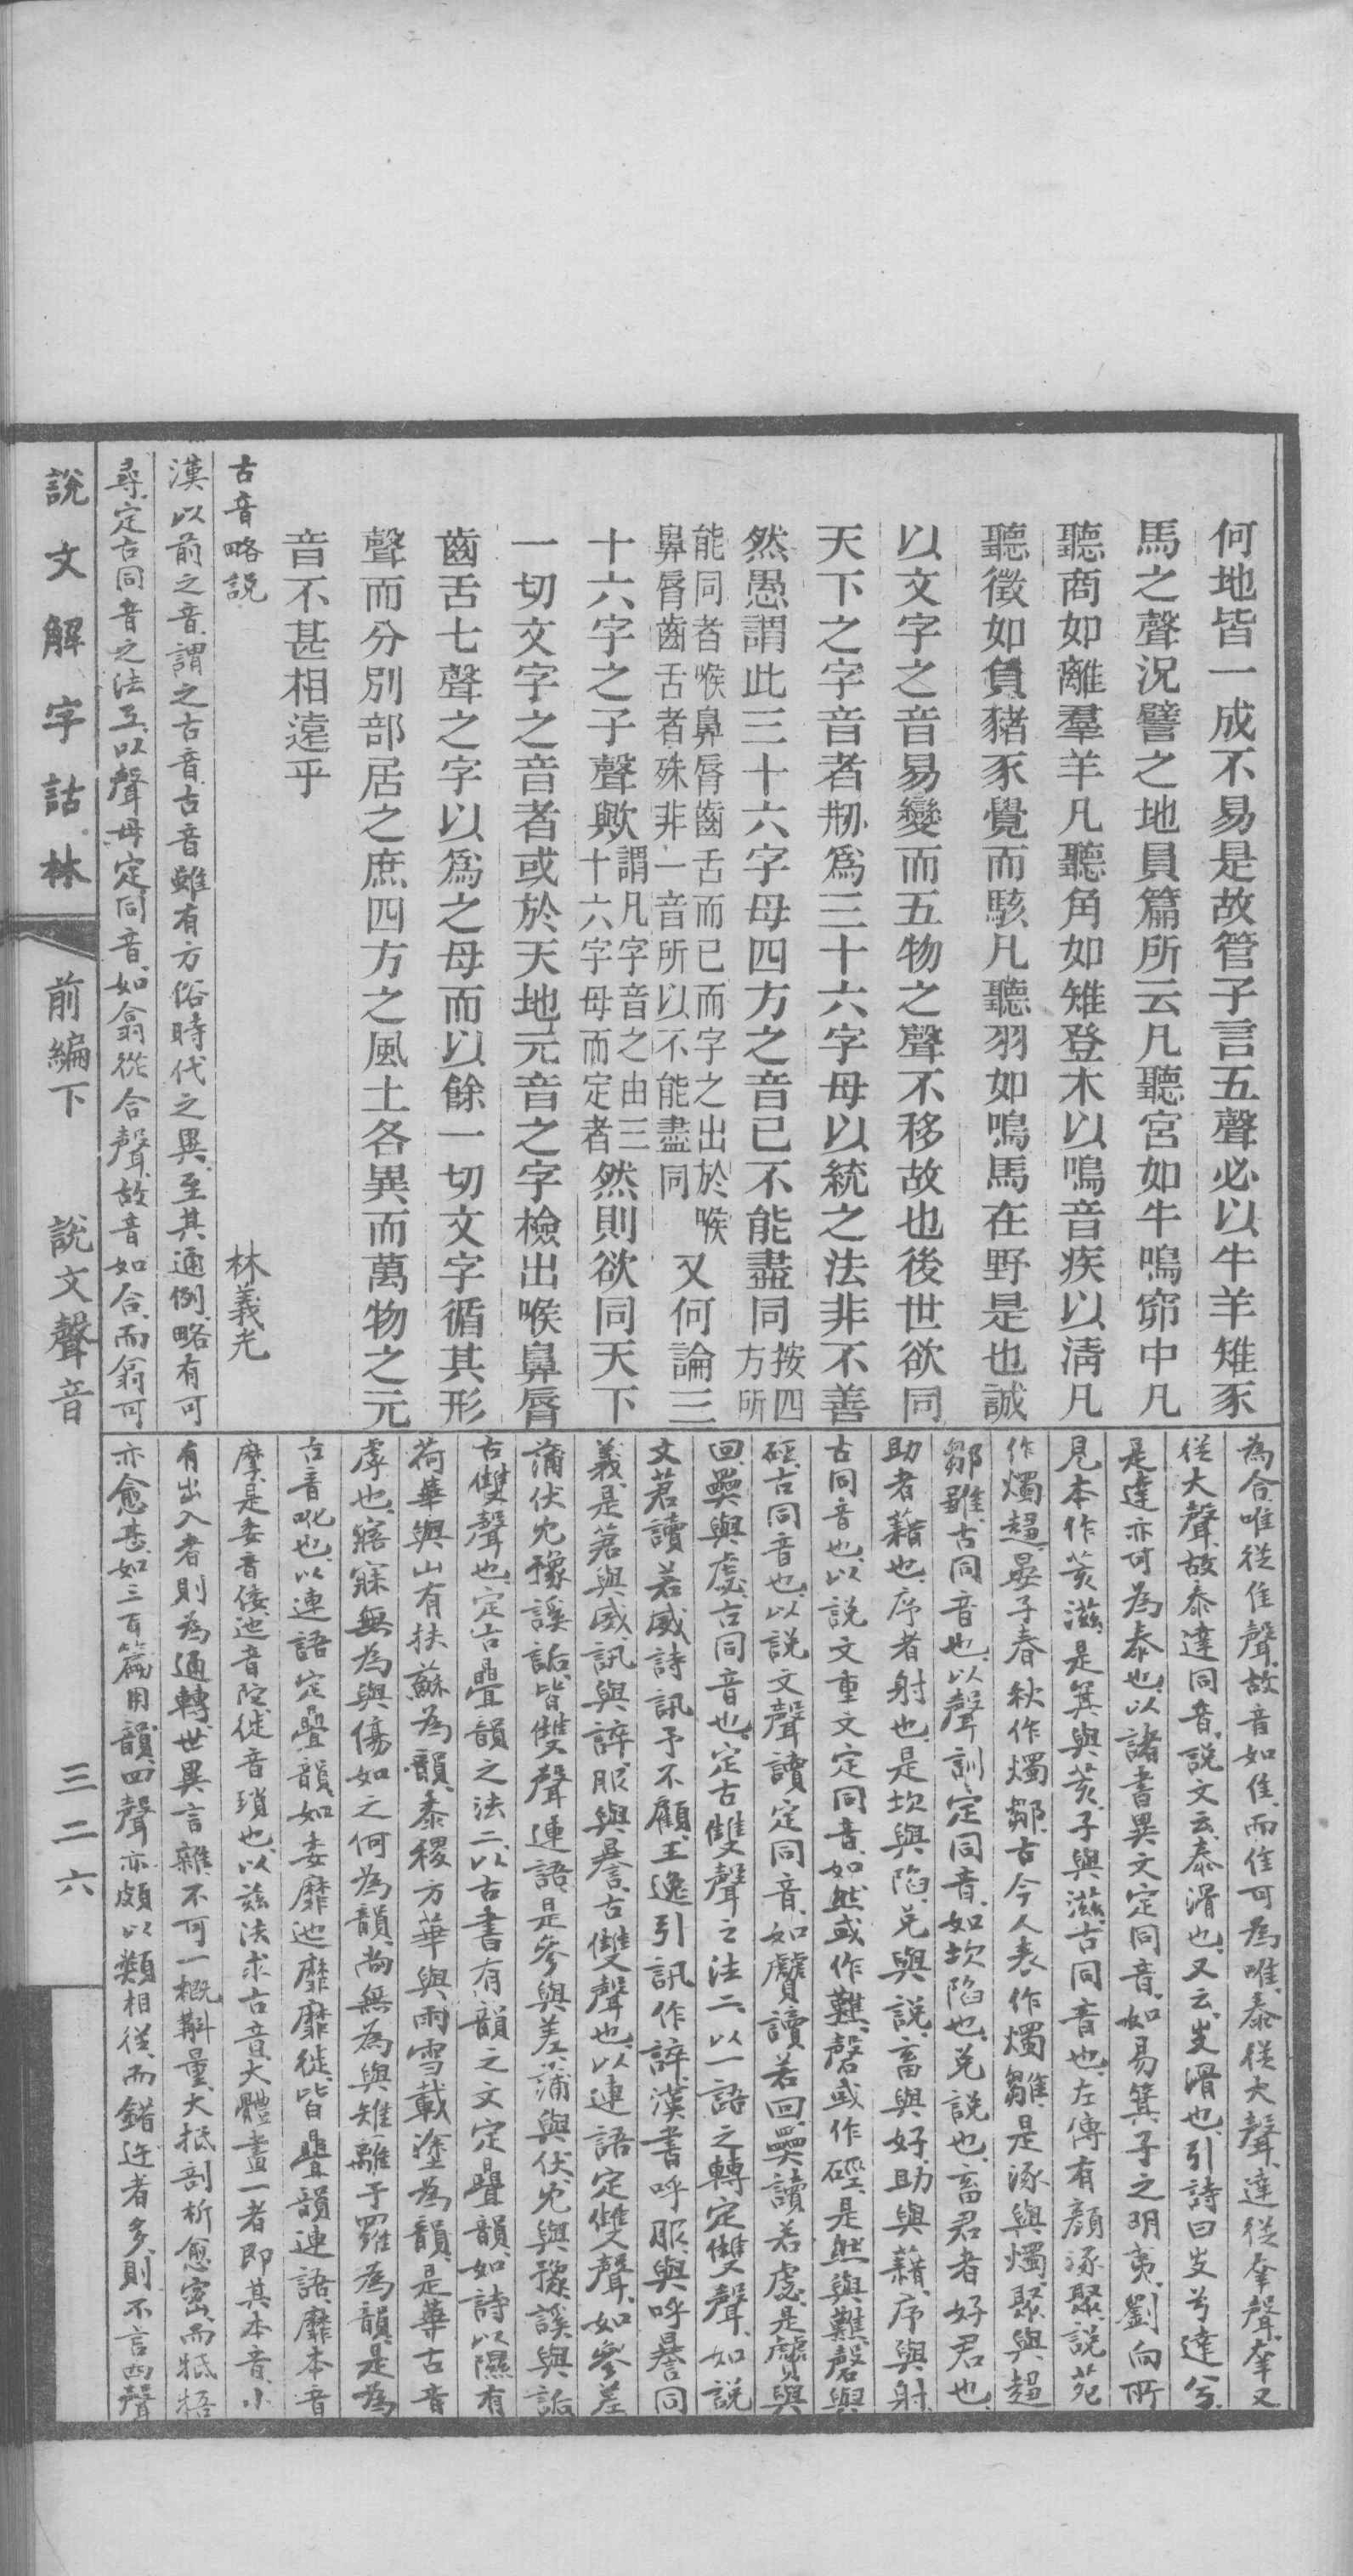 何地皆一成不易是故管子言五聲必以牛羊雉豕
馬之聲況譬之地員篇所云凡聽宮如牛鳴窌中凡
聽商如離羣羊凡聽角如雉登木以鳴音疾以淸凡
聽徵如負豬豕覺而駭凡聽羽如鳴馬在野是也誠
以文字之音易變而五物之聲不移故也後世欲同
天下之字音者剏爲三十六字母以統之法非不善
然愚謂此三十六字母四方之音已不能盡同按四方所
能同者喉鼻脣齒舌而已而字之出於喉鼻脣齒舌者殊非一音所以不能盡同又何論三
十六字之子聲歟謂凡字音之由三十六字母而定者然則欲同天下
一切文字之音者或於天地元音之字檢出喉鼻脣
齒舌七聲之字以爲之母而以餘一切文字循其形
聲而分別部居之庶四方之風土各異而萬物之元
音不甚相遠乎
古音略説 林義光
漢以前之音謂之古音、古音雖有方俗時代之異、至其通例、略有可
尋、定古同音之法五、以聲母定同音、如翕從合聲、故音如合、而翕可
為合、唯從隹聲、故音如隹、而隹可為唯、泰從大聲、達從羍聲、羍又
從大聲、故泰達同音、説文云、泰滑也、又云、㕙滑也、引詩曰㕙兮達兮、
是達亦可為泰也、以諸書異文定同音、如易箕子之明夷、劉向所
見本作荄滋、是箕與荄、子與滋、古同音也、左傳有顏涿聚、説苑
作燭趨、晏子春秋作燭鄒、古今人表作燭雛、是涿與燭、聚與趨
鄒雛、古同音也、以聲訓定同音、如坎陷也、兌説也、畜君者好君也、
助者藉也、序者射也、是坎與陷、兌與説、畜與好、助與藉、序與射、
古同音也、以説文重文定同音、如然或作䕼、磬或作硜、是然與䕼、磬與
硜、古同音也、以説文聲讀定同音、如䝿讀若回、㒍讀若虙、是䝿與
回、㒍與虙、古同音也、定古雙聲之法二、以一語之轉定雙聲、如説
文莙讀若威、詩訊予不顧、王逸引訊作誶、漢書呼服、與呼暴同
義、是莙與威、訊與誶、服與暴、古雙聲也、以連語定雙聲、如參差
蒲伏尤豫謑詬、皆雙聲連語、是參與差、蒲與伏、尤與豫、謑與詬
古雙聲也、定古疊韻之法二、以古書有韻之文定疊韻、如詩以隰有
荷華與山有扶蘇為韻、黍稷方華與雨雪載塗為韻、是華古音
虖也、寤寐無為與傷如之何為韻、尚無為與雉離于羅為韻、是為
古音吪也、以連語定疊韻、如委靡迆靡靡徙、皆疊韻連語、靡本音
摩、是委音倭、迆音陀、徙音瑣也、以茲法求古音、大體畫一者、即其本音、小
有出入者則為通轉、世異言雜、不可一概斠量、大抵剖析愈密、而牴牾
亦愈甚、如三百篇用韻、四聲亦頗以類相從、而錯迕者多、則不言四聲
說文解字詁林 前編下 說文聲音 三二六